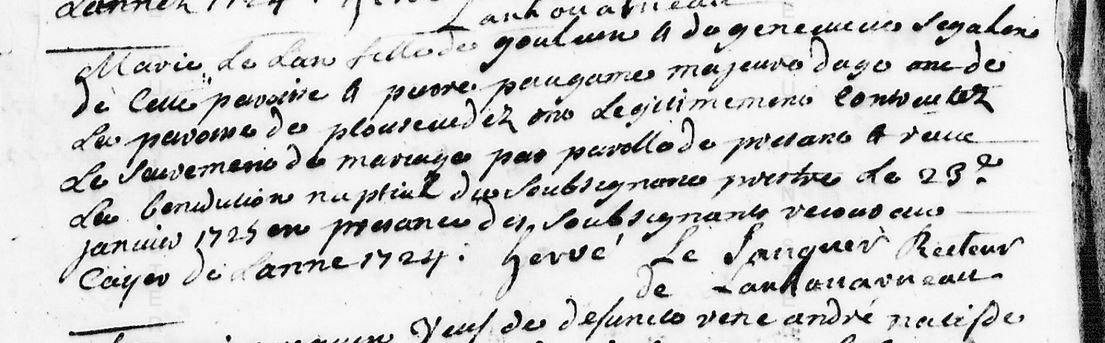 Lanhouarneau
Marie Le Lan fille de goulven & de genevieve Segalen
de Cette paroisse & pierre paugame majeure dage one de
La paroisse de plouscuedez ono Legitimement Contractez
Le Sacrement de mariage par parolle de presant & receu
La benediction nuptial du Soubsignant prestre Le 23e
janvier 1725 en presance des Soubsignants recours au
Cayer de Lanne 1724. hervé Le Jauguer Recteur
de Lanhouarneau
veuf de defuncte rene andré natif de